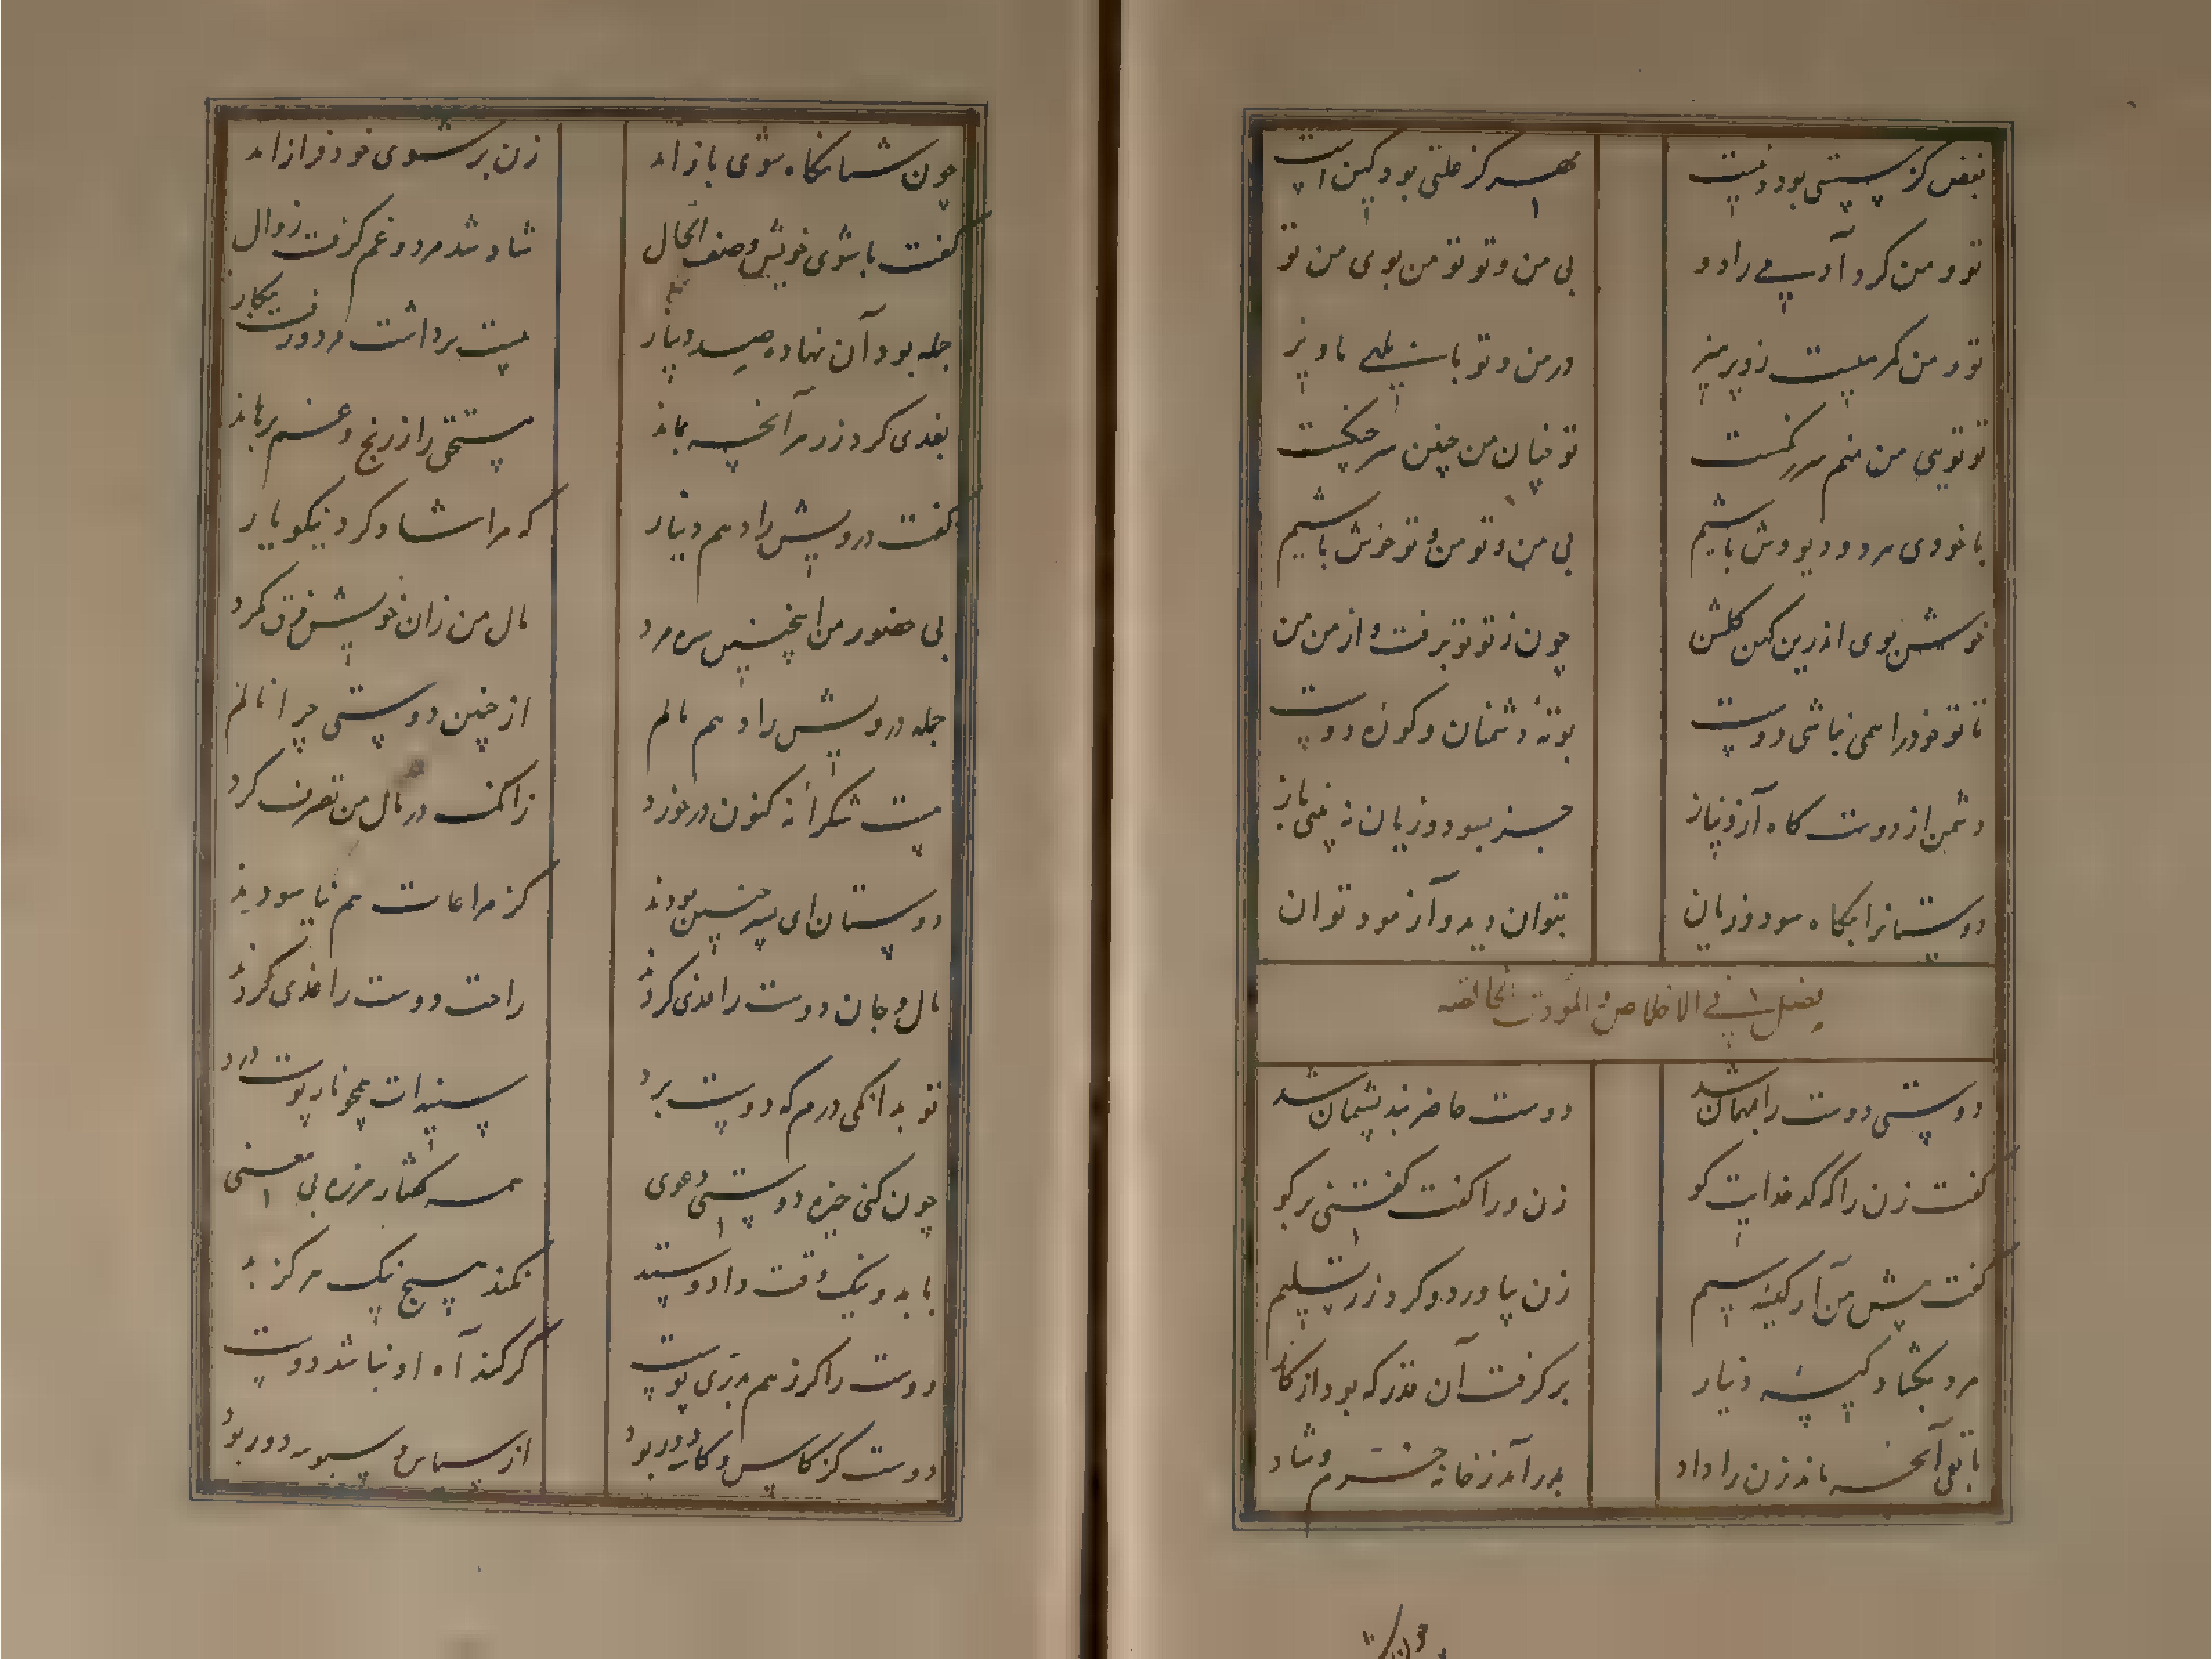 بغض کز سستی بود دینیست
مهر کز علتی بود کین است
تو و من کرد آدمی را دو
بی من و تو تو من بوی من تو
در من و تو
تو تویی من منم
تو میان من چنین
با خودی هر دو دیووش باشیم
بی من و تو من و تو خوش باشیم
خوش بوی اندرین کهن گلشن
چون ز تو تو برفت و از من من
تا تو خود را همی نباشی دوست
بوتهٔ دشمنان و کوزه دوست
دشمن از دوست گاه آز و نیاز
جز بسود و زیان نه بینی باز
دوستانرا بگاه سود و زیان
بتوان دید و آزمود توان
فصل فی الاخلاص و المودت الخالصه
دوستی دوست را بمهمان شد
دوست حاضر نبد پشیمان شد
گفت زن را که کدخدایت کو
زن ورا گفت گفتنی برگو
گفت پیش من آر کیسه سیم
زن بیاورد و کرد زر تسلیم
مرد بگشاد کیسه دینار
برگرفت آن قدر که بود از کار
باقی آنچه ماند زن را داد
بدر آمد ز خانه خرم و شاد
چون شبانگاه شوی باز آمد
زن بر شوی خود فراز آمد
گفت با شوی خویش وصف الحال
شاد شد مرد و غم گرفت زوال
جمله بود آن نهاده صد دینار
بیست برداشت مرد و رفت بکار
بعدی کرد زر هر آنچه بماند
مستحق را ز رنج و غم برهاند
گفت درویش را دهم دینار
که مرا شاد کرد نیکو یار
بی حضور من اینچنین سره مرد
مال من زان خویش فرق نکرد
جمله درویش را دهم مالم
از چنین دوستی چرا نالم
هست شکرانه کنون درخورد
زانک در مال من تصرف کرد
دوستان ای پسر چنین بودند
کز مراعات هم نیاسودند
مال و جان دوست را فدی کردند
راحت دوست را غذی کردند
تو بدانگی درم که دوست برد
سینه‌ات همچو نار پوست درد
چون کنی خیره دوستی دعوی
همه گفتار هرزه بی معنی
با بد و نیک وقت داد و ستد
نکند هیچ نیک هرگز بد
دوست را گر ز هم بدری پوست
گر کند آه او نباشد دوست
دوست کز کاس و کاسه دور بود
از سپاس و سبوسه دور بود